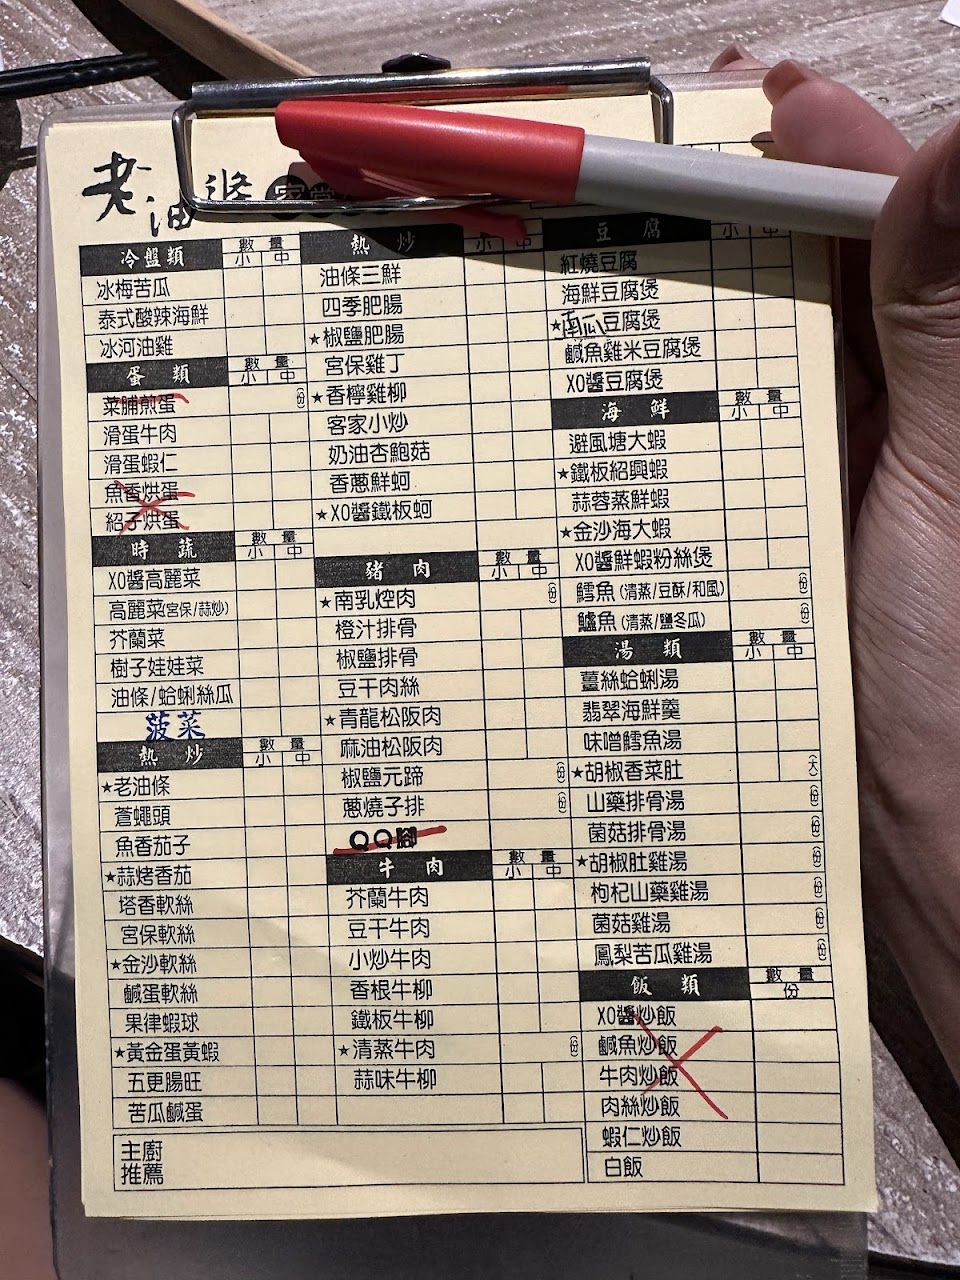 老油條
冷盤類 數量
小 中
冰梅苦瓜
泰式酸辣海鮮
冰河油雞
蛋類 數量
小 中
菜脯煎蛋 (份)
滑蛋牛肉
滑蛋蝦仁
魚香烘蛋
紹子烘蛋
時蔬 數量
小 中
XO醬高麗菜
高麗菜(宮保/蒜炒)
芥蘭菜
樹子娃娃菜
油條/蛤蜊絲瓜
菠菜
熱炒 數量
小 中
★老油條
蒼蠅頭
魚香茄子
★蒜烤香茄
塔香軟絲
宮保軟絲
★金沙軟絲
鹹蛋軟絲
果律蝦球
★黃金蛋黃蝦
五更腸旺
苦瓜鹹蛋
主廚
推薦
熱炒
小 中
油條三鮮
四季肥腸
★椒鹽肥腸
宮保雞丁
★香檸雞柳
客家小炒
奶油杏鮑菇
香蔥鮮蚵
★XO醬鐵板蚵
豬肉 數量
小 中
★南乳焢肉 (份)
橙汁排骨
椒鹽排骨
豆干肉絲
★青龍松阪肉
麻油松阪肉
椒鹽元蹄 (份)
蔥燒子排 (份)
QQ腳
牛肉 數量
小 中
芥蘭牛肉
豆干牛肉
小炒牛肉
香根牛柳
鐵板牛柳
★清蒸牛肉 (份)
蒜味牛柳
豆腐
小 中
紅燒豆腐
海鮮豆腐煲
★南瓜豆腐煲
鹹魚雞米豆腐煲
XO醬豆腐煲
海鮮 數量
小 中
避風塘大蝦
★鐵板紹興蝦
蒜蓉蒸鮮蝦
★金沙海大蝦
XO醬鮮蝦粉絲煲
鱈魚(清蒸/豆酥/和風) (份)
鱸魚(清蒸/鹽冬瓜) (份)
湯類 數量
小 中
薑絲蛤蜊湯
翡翠海鮮羹
味噌鱈魚湯
★胡椒香菜肚 (大)
山藥排骨湯 (份)
菌菇排骨湯 (份)
★胡椒肚雞湯 (份)
枸杞山藥雞湯 (份)
菌菇雞湯 (份)
鳳梨苦瓜雞湯 (份)
飯類 數量
份
XO醬炒飯
鹹魚炒飯
牛肉炒飯
肉絲炒飯
蝦仁炒飯
白飯